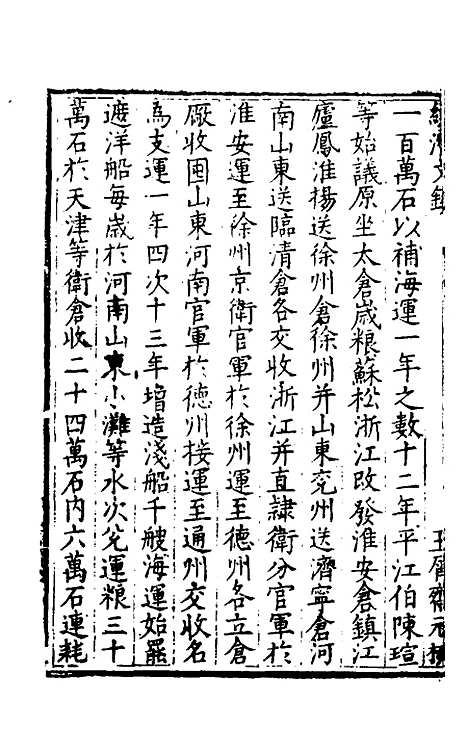 經濟文鈔
一百萬石以補海運一年之數十二年平江伯陳瑄
等始議原坐太倉歲粮蘇松浙江改發淮安倉鎮江
廬鳳淮楊送徐州倉徐州并山東兖州送濟寧倉河
南山東送臨清倉各交收浙江并直隸衛分官軍於
淮安運至徐州京衛官軍於徐州運至德州各立倉
厫收囤山東河南官軍於德州接運至通州交收名
為支運一年四次十三年增造淺船千艘海運始罷
遮洋船每歲於河南山東小灘等水次兊運粮三十
萬石於天津等衛倉收二十四萬石内六萬石連耗